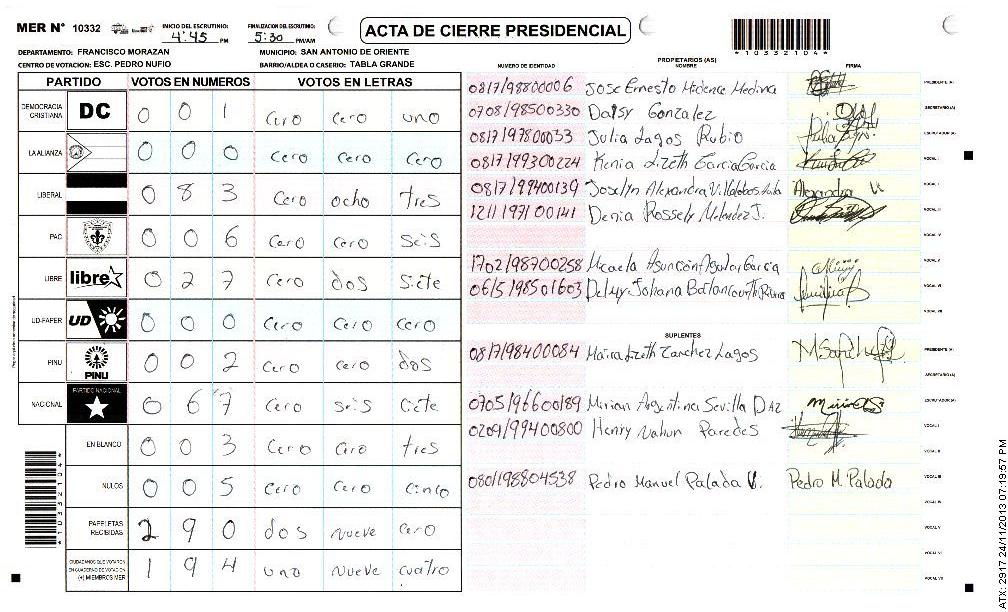 MER N° 10332
INICIO DEL ESCRUTINIO: 4:45 PM
FINALIZACION DEL ESCRUTINIO: 5:30 PM/AM
ACTA DE CIERRE PRESIDENCIAL
*10332104*
DEPARTAMENTO: FRANCISCO MORAZAN
MUNICIPIO: SAN ANTONIO DE ORIENTE
CENTRO DE VOTACION: ESC. PEDRO NUFIO
BARRIO/ALDEA O CASERIO: TABLA GRANDE
PARTIDO VOTOS EN NUMEROS VOTOS EN LETRAS
DEMOCRACIA CRISTIANA DC 0 0 1 Cero Cero uno
LA ALIANZA 0 0 0 Cero Cero Cero
LIBERAL 0 8 3 Cero ocho tres
PAC 0 0 6 Cero Cero seis
LIBRE libre 0 2 7 Cero dos Siete
UD-FAPER UD 0 0 0 Cero Cero Cero
PINU PINU 0 0 2 Cero Cero dos
NACIONAL PARTIDO NACIONAL 0 6 7 Cero seis Ciete
EN BLANCO 0 0 3 Cero Cero tres
NULOS 0 0 5 Cero Cero Cinco
PAPELETAS RECIBIDAS 2 9 0 dos nueve Cero
CIUDADANOS QUE VOTARON EN CUADERNO DE VOTACION (+) MIEMBROS MER 1 9 4 uno nueve cuatro
*10332104*
PROPIETARIOS (AS)
NUMERO DE IDENTIDAD NOMBRE FIRMA
0817/198800006 Jose Ernesto Midence Medina PRESIDENTE (A)
0708/198500330 Daisy Gonzalez SECRETARIO (A)
0817/197800033 Julia Lagos Rubio ESCRUTADOR (A)
0817/199300224 Kenia Lizeth Garcia Garcia VOCAL I
0817/199400139 Joselyn Alexandra Villalobos Alexandra V. VOCAL II
1211/1971/00141 Denia Rossely Melendez J. VOCAL III
VOCAL IV
1702/198700258 Micaela Asuncion Aguilar Garcia VOCAL V
0615/198501603 Johana VOCAL VI
VOCAL VII
SUPLENTES
0817/198400084 Maira Lizeth Zanchez Lagos PRESIDENTE (A)
SECRETARIO (A)
0705/196600189 Mirian Argentina Sevilla DAZ ESCRUTADOR (A)
0209/199400800 Henry Nahun Paredes VOCAL I
VOCAL II
0801/198804538 Pedro Manuel Palada V. Pedro M. Palada VOCAL III
VOCAL IV
VOCAL V
VOCAL VI
VOCAL VII
ATX: 2917 24/11/2013 07:19:57 PM